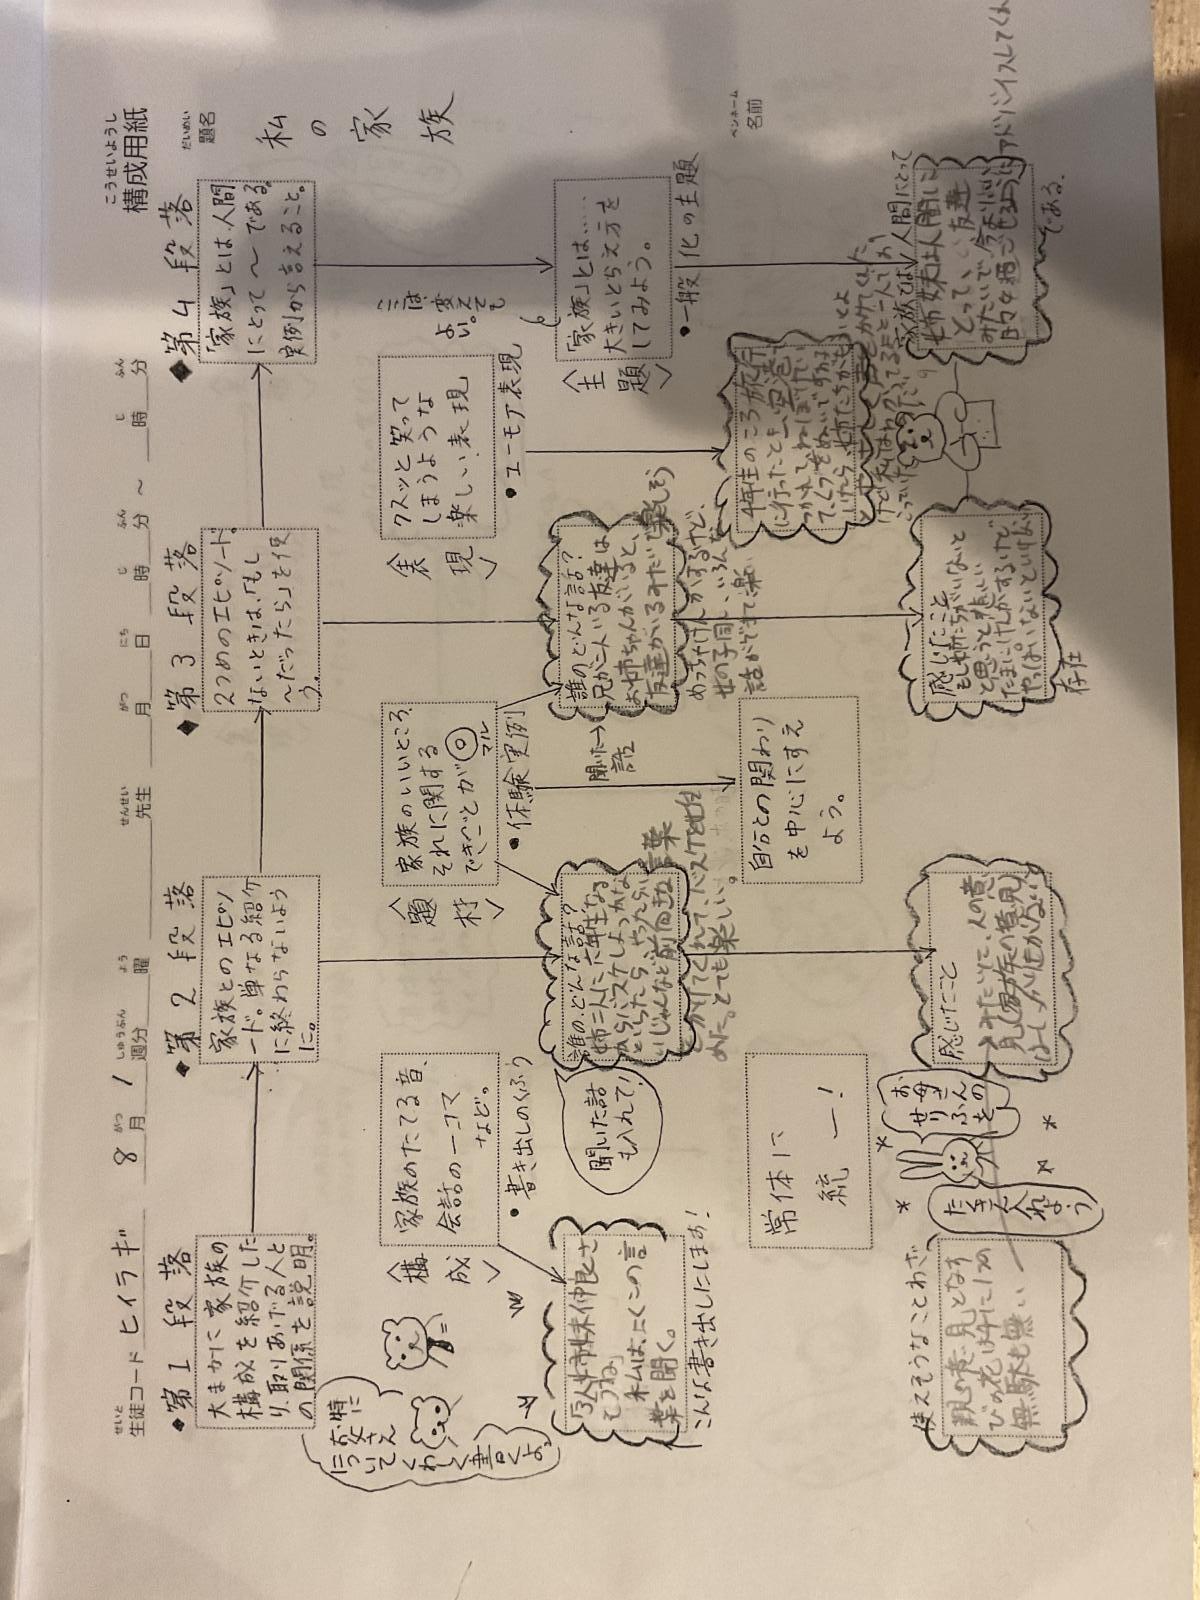 こうせいようし
構成用紙
だいめい
題名
私の家族
ペンネーム
名前
せいと
生徒コード ヒイラギ
8月1週分
がつ しゅうぶん
曜 先生
よう せんせい
月 日 時 分 〜 時 分
がつ にち じ ふん じ ふん
◆第1段落
大まかに家族の
構成を紹介した
り、取りあげる人と
の関係を説明。
◆第2段落
家族とのエピソ
ード。単なる紹介
に終わらないよう
に。
◆第3段落
2つめのエピソード。
ないときは、「もし
〜だったら」を使
う。
◆第4段落
「家族」とは、人間
にとって〜である。
実例から言えること。
特に
お父さん
について
くわしく
書くよ。
〈構成〉
家族のたてる音、
会話の一コマ
など。
・書き出しのくふう
〈題材〉
家族のいいところ、
それに関する
できごとが◎
マル
・体験実例
〈表現〉
クスッと笑って
しまうような
楽しい表現
・ユーモア表現
ここは、変えても
よい。
〈主題〉
「家族」とは……
大きいとらえ方を
してみよう。
・一般化の主題
「3人姉妹仲良さ
そうね」
私は、よくこの言
葉を聞く。
こんな書き出しにします!
聞いた話
も入れて!
誰の、どんな話?
姉二人に、六年生になる
からバスケしようかな
といったら、やったらい
いじゃんなど前向きな言葉
をかけてくれて、バスケを始
めた。とても楽しい。
聞いた話
誰のどんな話?
兄が二人いる友達は、
お姉ちゃんがいると、
友達がいるみたいで楽しそう
めっちゃけんかするけど、
女の子同士、いろんな
話ができて楽しい
4年生のころ旅行
に行ったとき、空港で
つかれて、ねぼけてい
て、くつをぬいですわ
常体に
統一!
自分との関わり
を中心にすえ
よう。
使えそうなことわざ
親の意見となす
びの花は千に1つの
無駄も無い
お母さんの
セリフを
たくさん入れよう
感じたこと
人の意
見、家族の意見
感じたこと
もし姉たちがいないと
と思うと悲しい
たまにけんかするけど
やっぱりいないといけない
存在
家族とは、人間にとって
姉妹は人間に
とって、友達
みたいで、
アドバイスしてくれ
である。